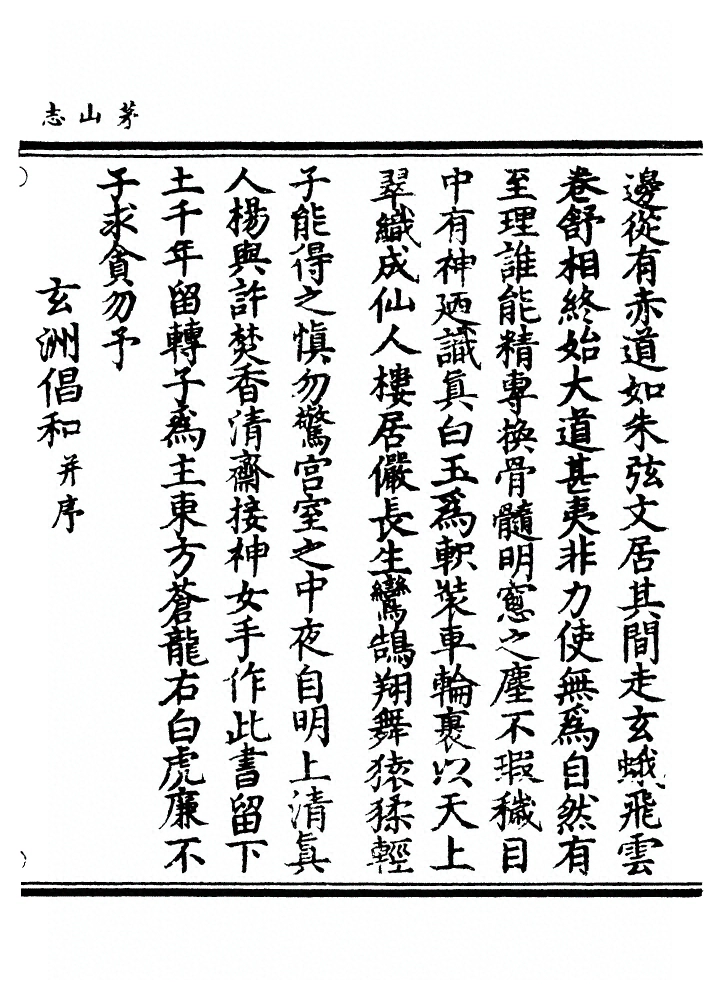 茅山志
邊從有赤道如朱弦文居其間走玄蛾飛雲
卷舒相終始大道甚夷非力使無爲自然有
至理誰能精專換骨髓明窻之塵不瑕穢目
中有神廼識眞白玉爲軹裝車輪裹以天上
翠織成仙人樓居儼長生鸞鵠翔舞猿猱輕
子能得之慎勿驚宫室之中夜自明上清眞
人楊與許焚香清齋接神女手作此書留下
土千年留轉子爲主東方蒼龍右白虎廉不
予求貪勿予
玄洲倡和并序